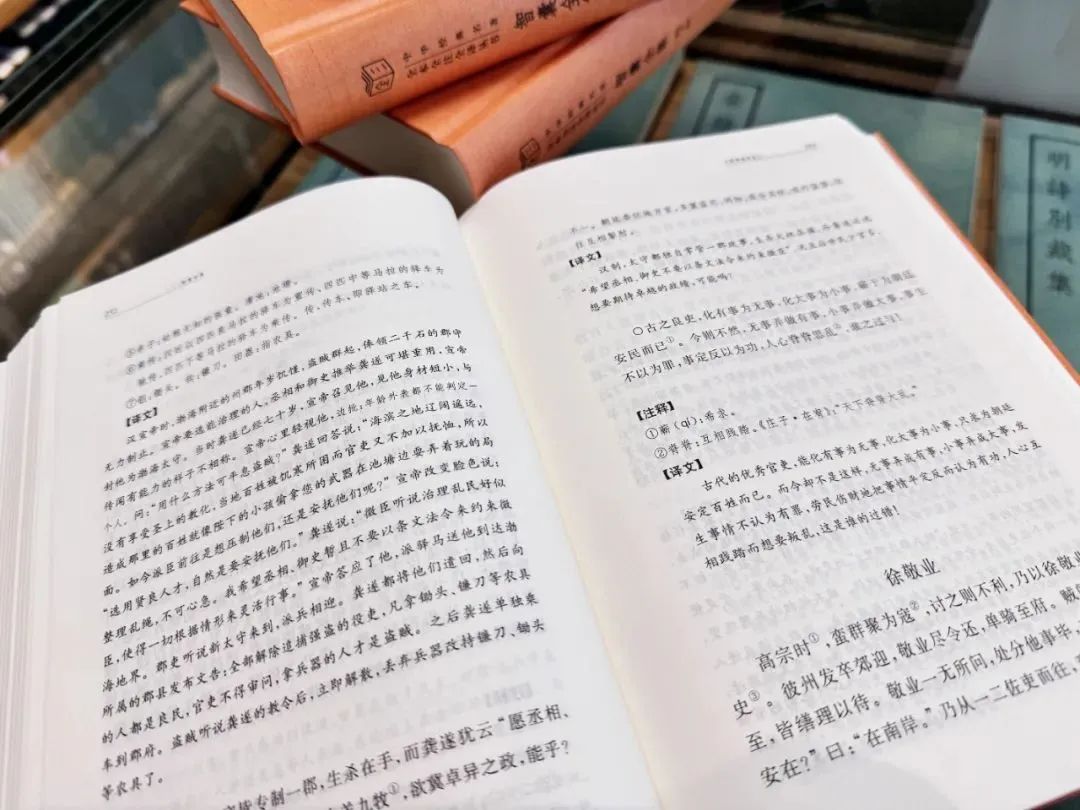 中华经典名著
全本全注全译丛书
智囊全
明诗别裁集
⑤赤子
⑥乘传:汉代以四匹高马拉的驿车为置传、四匹中等马拉的驿车为
驰传、四匹下等马拉的驿车为乘传。传,传车,即驿站之车。
⑦钼:锄头。钩:镰刀。田器:指农具。
【译文】
汉宣帝时,渤海附近的问那年岁饥馑,盗贼群起,俸领二千石的郡守
无力制止。宣帝要选能治理的人,丞相和御史推举龚遂可堪重用,宣帝
封他为渤海太守。当时龚遂已经七十岁,宣帝召见他,见他身材短小,与
传闻有能力的样子不相称。宣帝心里轻视他,边批:年龄外表都不能判定一
个人。问:“用什么方法可平息盗贼?”龚遂回答说:“海滨之地辽阔遥远,
没有享受圣上的教化,当地百姓被饥寒所困而官吏又不加以抚恤,所以
造成那里的百姓就像陛下的小孩偷拿您的武器在池塘边耍弄着玩的局
面。如今派臣前往是想压制他们,还是安抚他们呢?”宣帝改变脸色说:
“选用贤良人才,自然是要安抚他们。”龚遂说:“微臣听说治理乱民好似
整理乱绳,不可心急。我希望丞相、御史暂且不要以条文法令来约束微
臣,使得一切根据情形来灵活行事。”宣帝答应了他,派驿马送他到达渤
海地界。郡吏听说新太守来到,派兵相迎。龚遂都将他们遣回,然后向
所属的郡县发布文告:全部解除追捕强盗的役吏,凡拿锄头、镰刀等农具
的人都是良民,官吏不得审问,拿兵器的人才是盗贼。之后龚遂单独乘
车到郡府。盗贼听说龚遂的教令后,立即解散,丢弃兵器改持镰刀、锄头
等农具了。
专制一郡,生杀在手,而龚遂犹云“愿丞相、
九牧①,欲冀卓异之政,能乎?
往互相掣肘。
【译文】
汉制,太守都独自掌管一郡政事,生杀大权在握,而龚遂还说
“希望丞相、御史不要以条文法令来约束微臣”
想要期待卓越的政绩,可能吗?
〇古之良吏,化有事为无事,化大事为小事,蕲于为朝廷
安民而已①。今则不然,无事弄做有事,小事弄做大事,事生
不以为罪,事定反以为功,人心脊脊思乱②,谁之过与!
【注释】
①蕲(qí):希求。
②脊脊:互相践踏。《庄子·在宥》:“天下脊脊大乱。”
【译文】
古代的优秀官吏,能化有事为无事,化大事为小事,只求为朝廷
安定百姓而已。而今却不是这样,无事弄成有事,小事弄做大事,发
生事情不认为有罪,劳民伤财地把事情平定反而认为有功,人心互
相践踏而想要叛乱,这是谁的过错!
徐敬业
高宗时①,蛮群聚为寇②,讨之则不利,乃以徐敬业
史③。彼州发卒郊迎,敬业尽令还,单骑至府。贼
至,皆缮理以待。敬业一无所问,处分他事毕,
安在?”曰:“在南岸。”乃从一二佐吏而往,